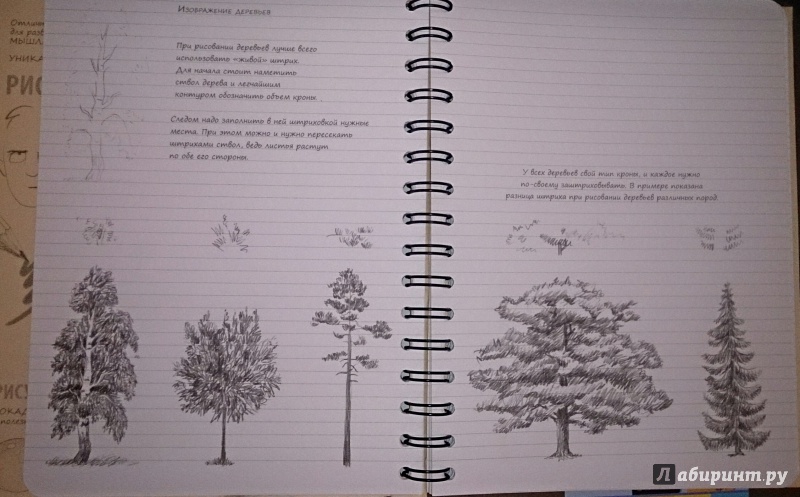 Изображение деревьев
При рисовании деревьев лучше всего
использовать «живой» штрих.
Для начала стоит наметить
ствол дерева и легчайшим
контуром обозначить объем кроны.
Следом надо заполнить в ней штриховкой нужные
места. При этом можно и нужно пересекать
штрихами ствол, ведь листья растут
по обе его стороны.
У всех деревьев свой тип кроны, и каждое нужно
по-своему заштриховывать. В примере показана
разница штриха при рисовании деревьев различных пород.
Лабиринт.ру